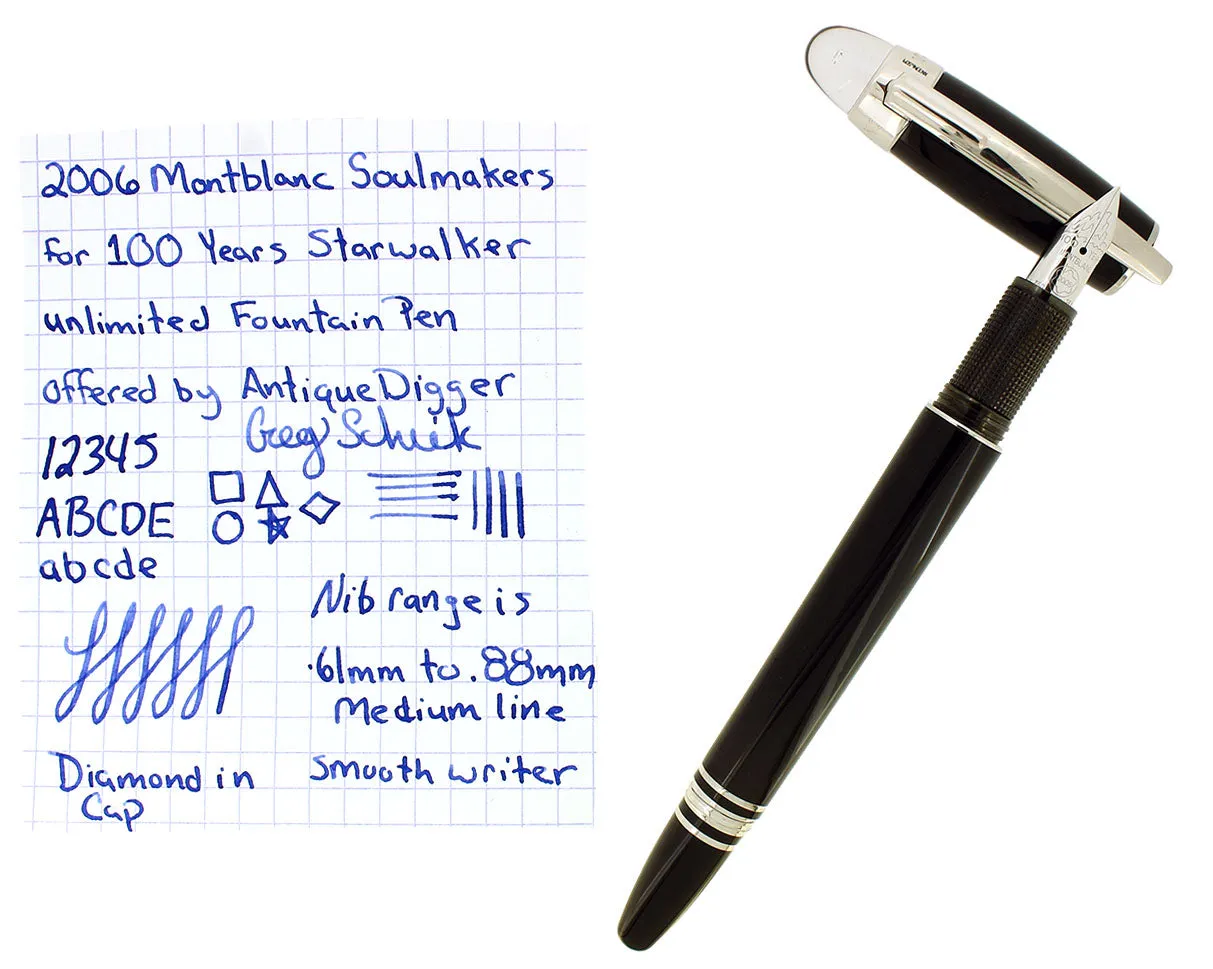 2006 Montblanc Soulmakers
for 100 Years Starwalker
unlimited Fountain Pen
offered by AntiqueDigger
Greg
12345
ABCDE
abcde
Nib range is
.61mm to .88mm
Medium line
Diamond in
Cap
smooth writer